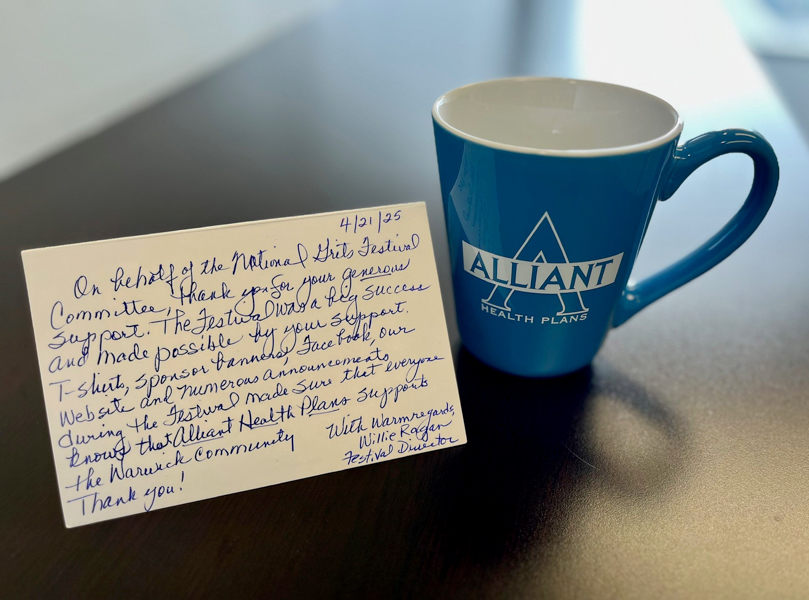 4/21/25
On behalf of the National Grits Festival
Committee, thank you for your generous
support. The Festival was a big success
and made possible by your support.
T-shirts, sponsor banners, Facebook, our
Website and numerous announcements
during the Festival made sure that everyone
knows that Alliant Health Plans supports
the Warwick Community
Thank you!
With Warm regards,
Willie Ragan
Festival Director
ALLIANT
HEALTH PLANS